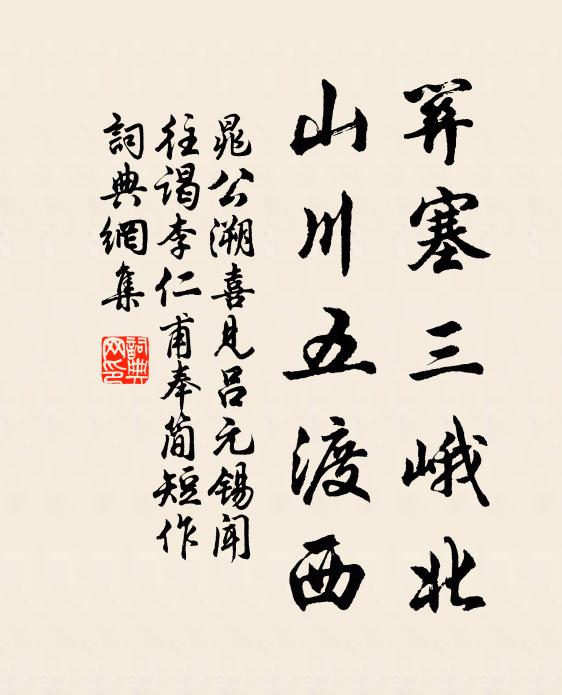 關塞三峨北
山川五渡西
晁公溯喜見呂元錫聞
往謁李仁甫奉简短作
詞典網集
詞典
网印